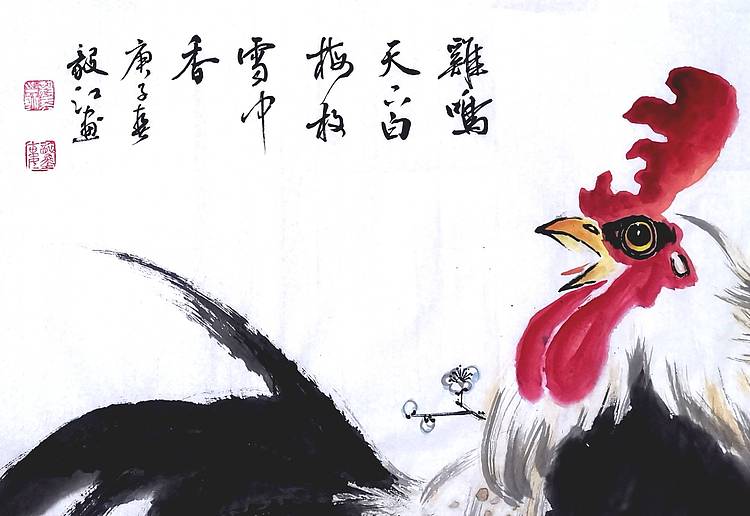 雞鳴
天下白
梅枝
雪中
香
庚子春
毅江畫